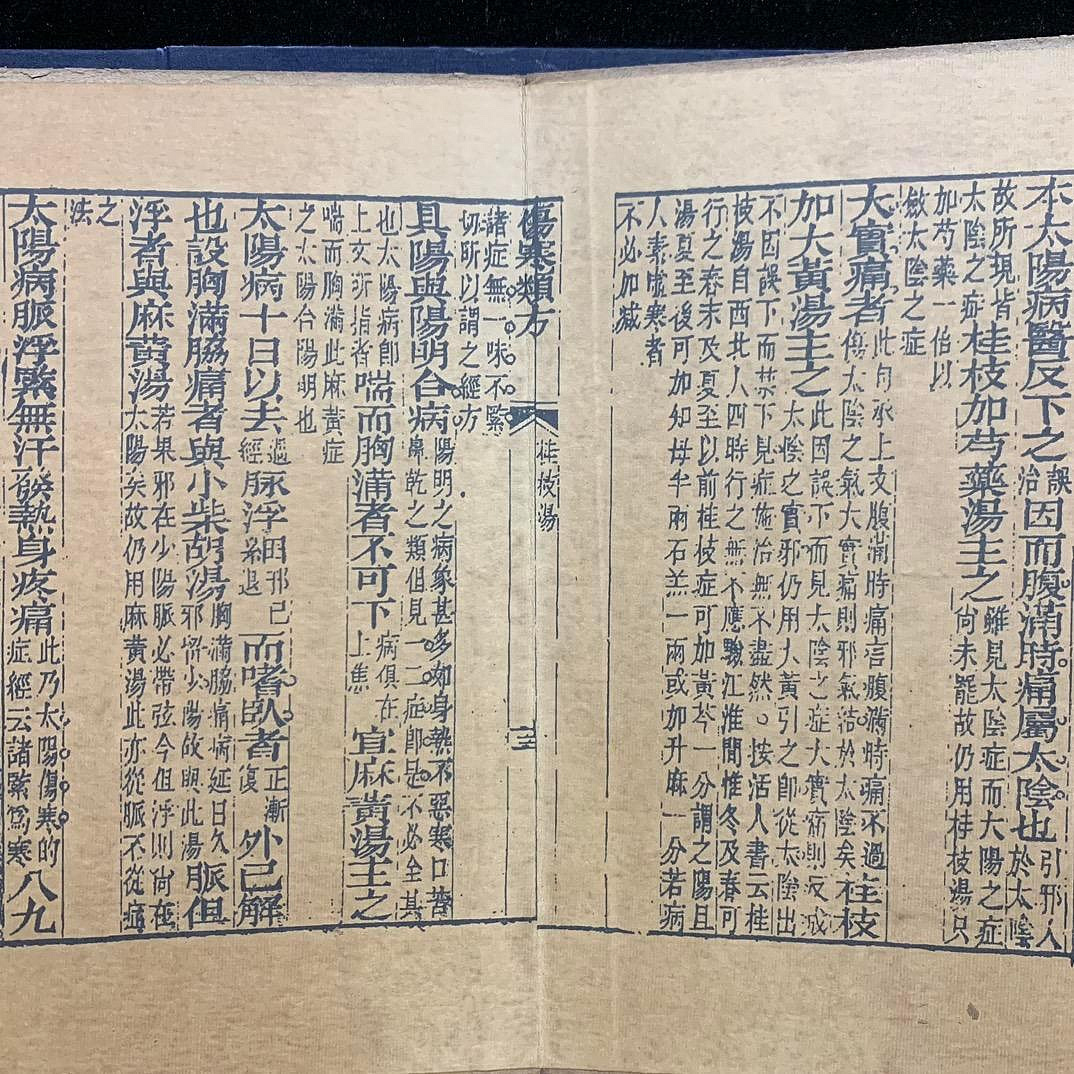 本太陽病醫反下之誤治因而腹滿時痛屬太陰也引邪入於太陰
故所現皆太陰之症桂枝加芍藥湯主之雖見太陰症而大陽之症尚未罷故仍用桂枝湯只
加芍藥一倍以斂太陰之症
大實痛者此句承上文腹滿時痛言腹滿時痛不過傷太陰之氣大實痛則邪氣結於太陰矣桂枝
加大黃湯主之此因誤下而見太陰之症大實痛則反成太陰之實邪仍用大黃引之即從太陰出
不因誤下而禁下見症施治無不盡然。按活人書云桂
枝湯自西北人四時行之無不應驗江淮間惟冬及春可
行之春末及夏至以前桂枝症可加黃芩一分謂之陽旦
湯夏至後可加知母半兩石羔一兩或加升麻一分若病
人素虛寒者
不必加減
傷寒類方 桂枝湯
諸症無一味不緊
切所以謂之經方
具陽與陽明合病陽明之病象甚多如身熱不惡寒口苦鼻乾之類但見一二症即是不必全具
也太陽病即上文所指者喘而胸滿者不可下病俱在上焦宜麻黃湯主之
喘而胸滿此麻黃症之太陽合陽明也
太陽病十日以去過經脉浮細邪已退而嗜臥者正漸復外已解
也設胸滿脇痛者與小柴胡湯胸滿脇痛病延日久邪留少陽故與此湯脈但
浮者與麻黃湯若果邪在少陽脈必帶弦今但浮則尚在太陽矣故仍用麻黃湯此亦從脈不從症
之法
太陽病脈浮緊無汗發熱身疼痛此乃太陽傷寒的症經云諸緊爲寒八九